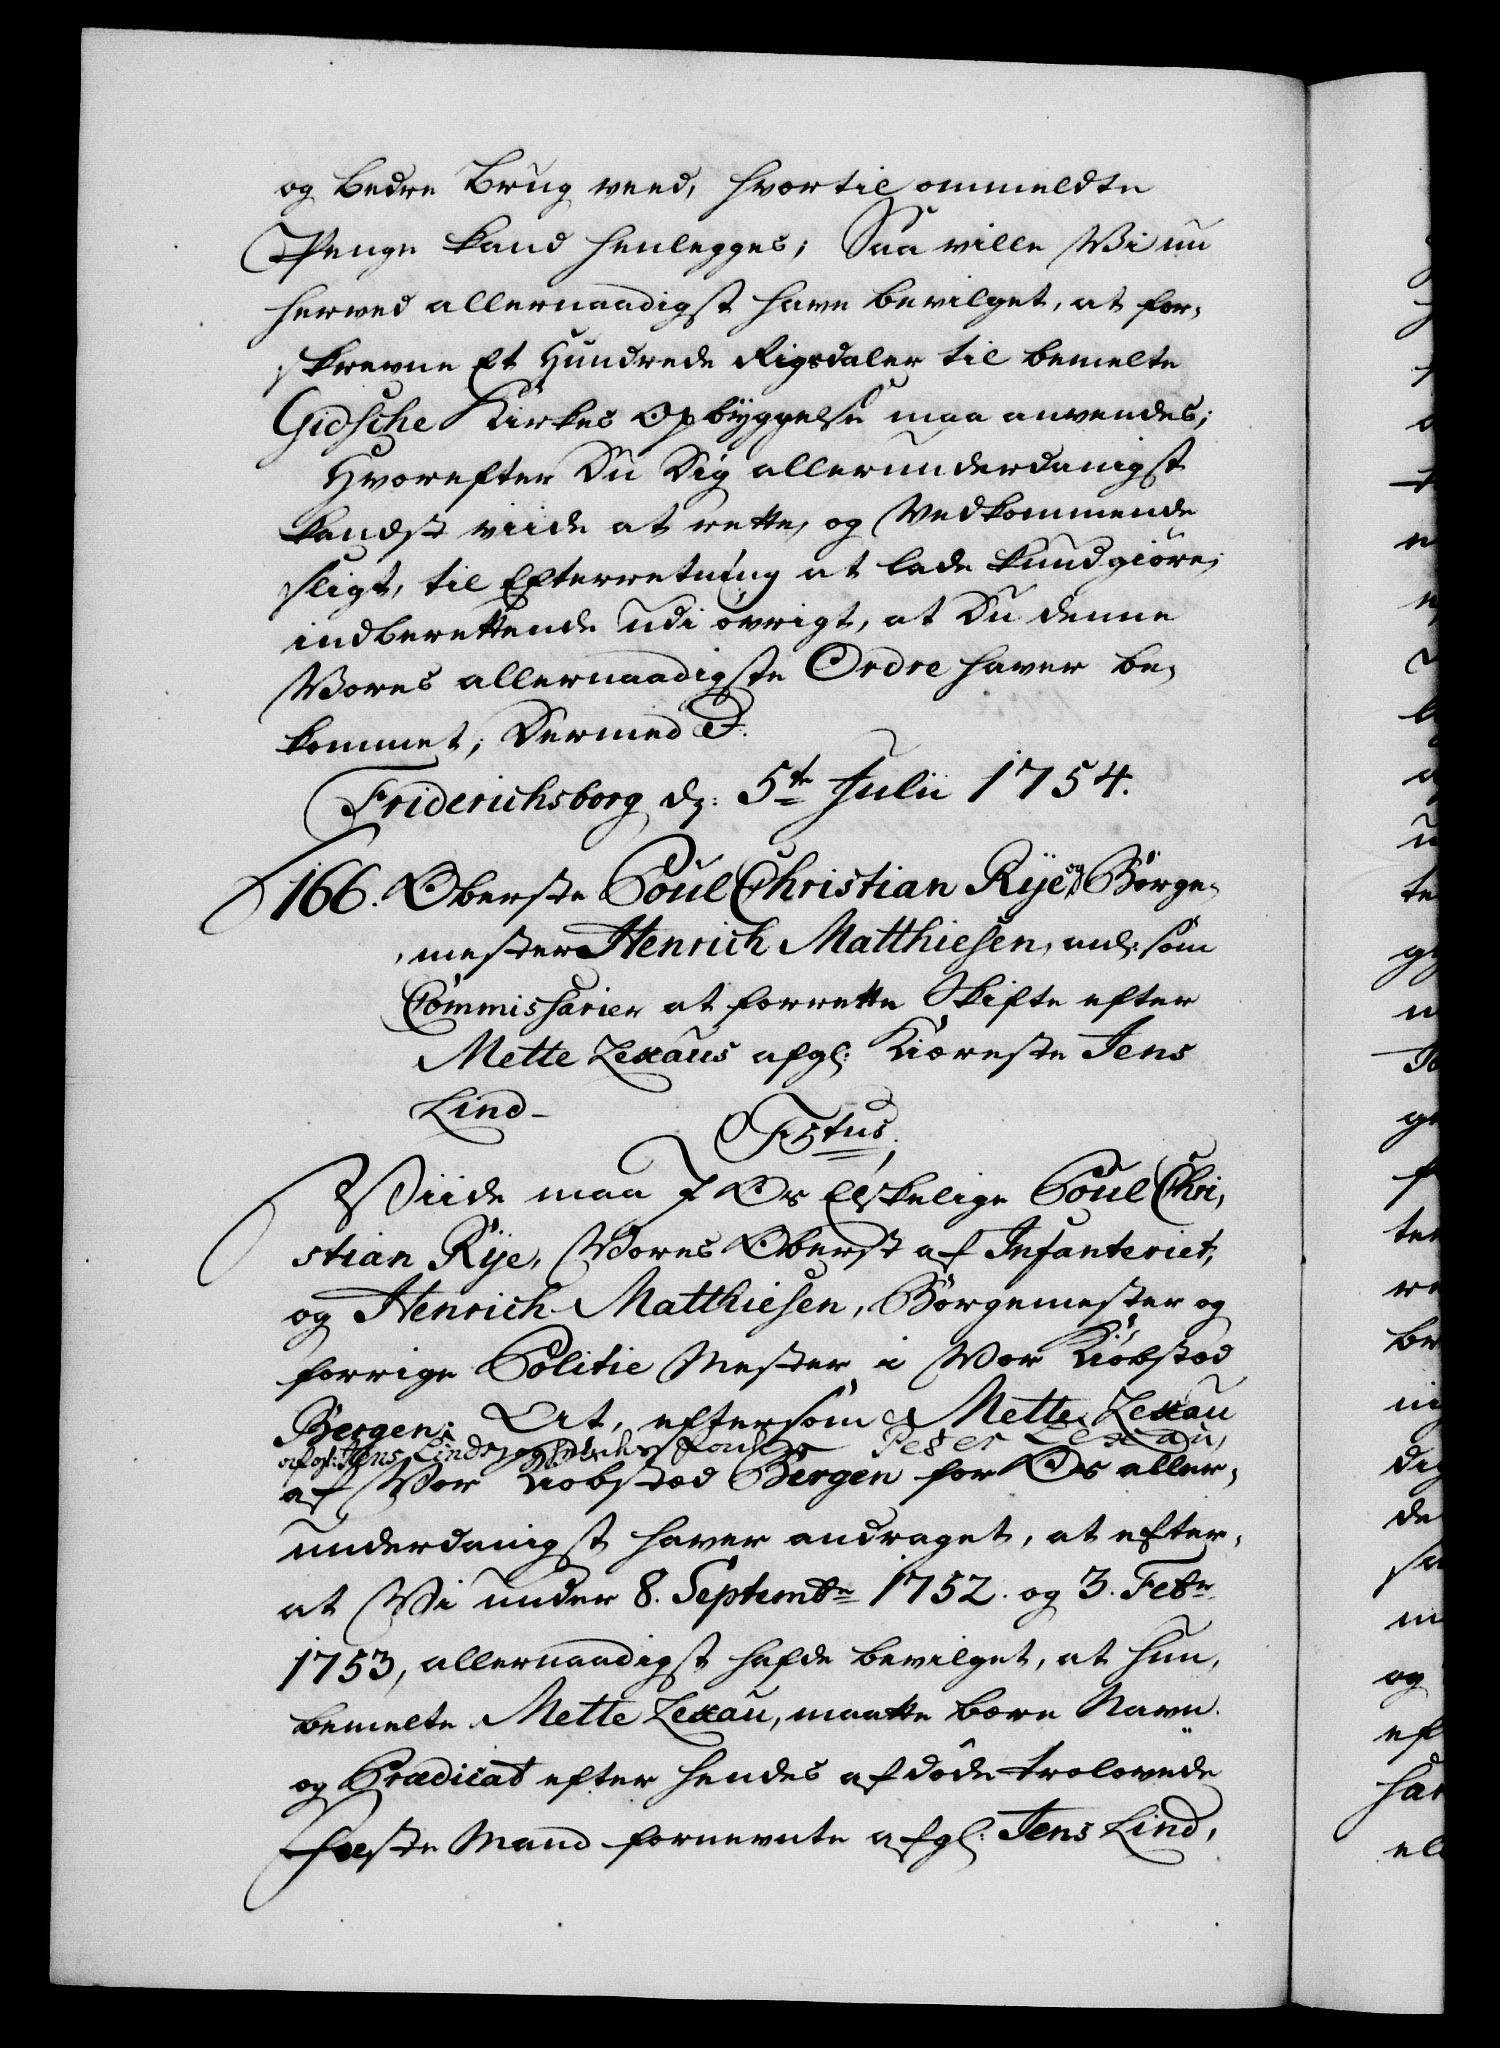 og bedre Brug veed, hvortil ommeldte
Penge kand henlegges; Saa ville Vi nu
herved allernaadigst have bevilget, at for-
skrevne Et Hundrede Rigsdaler til bemelte
Gidsche Kirkes Opbÿggelse maa anvendes;
Hvorefter Du Dig allerunderdanigst
kandst viide at rette, og Vedkommende
sligt, til Efterretning at lade kundgiöre;
indberettende udi övrigt, at Du denne
Vores allernaadigste Ordre haver be-
kommet; Dermed &.
Friderichsborg d: 5te Julii 1754.
166. Oberste Poul Christian Rÿe og Börge-
mester Henrich Matthiesen, anl: som
Commissarier at forrette Skifte efter
Mette Zexaus afgl: Kiæreste Jens
Lind-
F5tus,
Viide maa I Os Elskelige Poul Chri-
stian Rÿe, Vores Oberst af Infanteriet,
og Henrich Matthiesen, Börgemester og
forrige Politie Mester i Vor Kiöbstæd
Bergen; At, eftersom Mette Zexau
afgl: Jens Linds, og hendes Fader Peter Zexau,
af Vor Kiöbstæd Bergen for Os aller-
underdanigst haver andraget, at efter-
at Vi under 8. Septembr 1752. og 3. Febr
1753, allernaadigst hafde bevilget, at hun,
bemelte Mette Zexau, maatte bære Navn
og Prædicat efter hendes afdöde trolovede
Fæste Mand fornevnte afgl: Jens Lind,